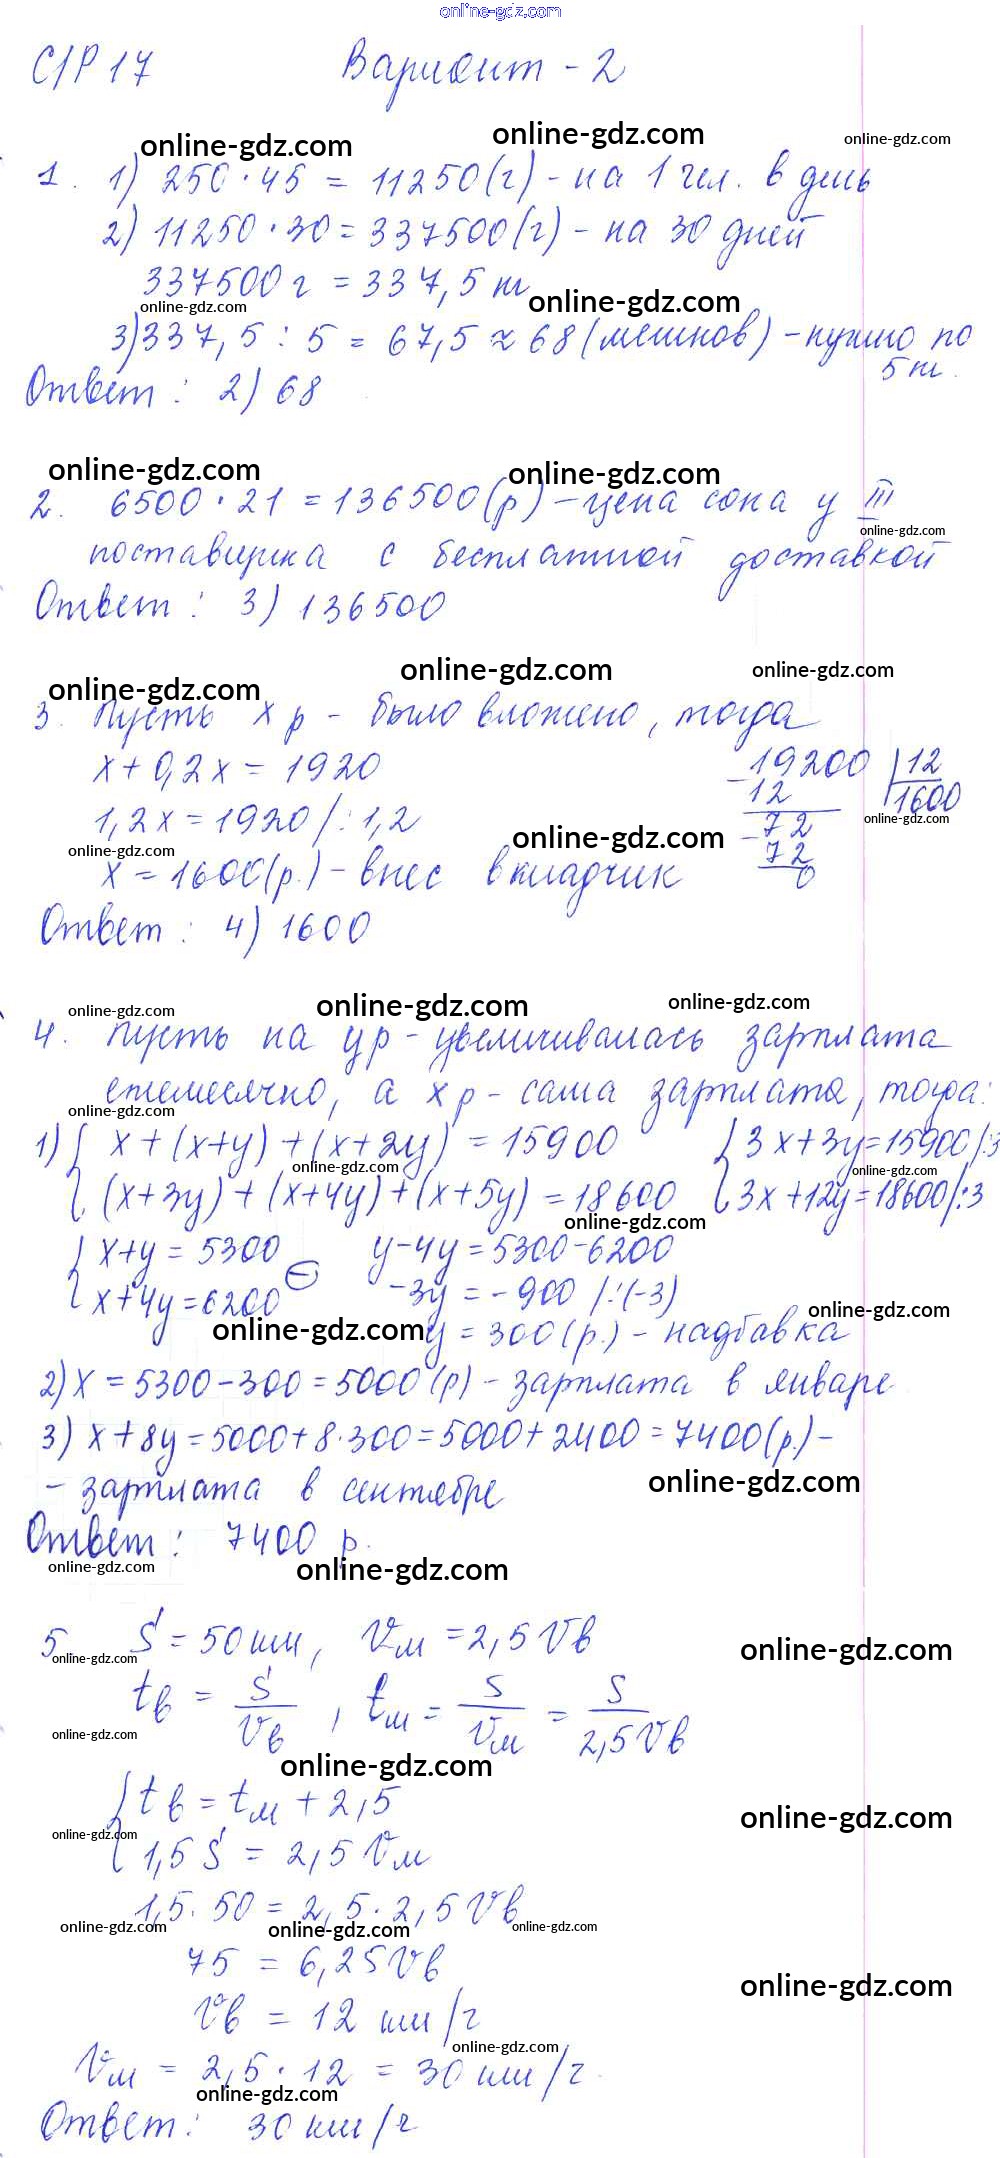 online-gdz.com
С/Р 17 Вариант - 2
online-gdz.com online-gdz.com online-gdz.com
1. 1) 250 · 45 = 11250 (г) - на 1 чел. в день
2) 11250 · 30 = 337500 (г) - на 30 дней
337500 г = 337,5 кг
online-gdz.com online-gdz.com
3) 337,5 : 5 = 67,5 ≈ 68 (мешков) - нужно по
5 кг.
Ответ: 2) 68
online-gdz.com online-gdz.com
2. 6500 · 21 = 136500 (р) - цена сока у III
online-gdz.com
поставщика с бесплатной доставкой
Ответ: 3) 136500
online-gdz.com online-gdz.com online-gdz.com
3. Пусть x р - было вложено, тогда
x + 0,2x = 1920
19200 | 12
12 1600
1,2x = 1920 /: 1,2
72
online-gdz.com online-gdz.com online-gdz.com
72
x = 1600 (р.) - внес вкладчик
0
Ответ: 4) 1600
online-gdz.com online-gdz.com online-gdz.com
4. Пусть на y р - увеличивалась зарплата
ежемесячно, а x р - сама зарплата, тогда:
online-gdz.com
1) { x + (x+y) + (x+2y) = 15900 { 3x + 3y = 15900 /:3
online-gdz.com online-gdz.com
(x+3y) + (x+4y) + (x+5y) = 18600 3x + 12y = 18600 /:3
online-gdz.com
{ x + y = 5300 y - 4y = 5300 - 6200
x + 4y = 6200 - -3y = -900 /:(-3)
online-gdz.com online-gdz.com
y = 300 (р.) - надбавка
2) x = 5300 - 300 = 5000 (р) - зарплата в январе
3) x + 8y = 5000 + 8·300 = 5000 + 2400 = 7400 (р.) -
online-gdz.com
- зарплата в сентябре
Ответ: 7400 р.
online-gdz.com online-gdz.com
5. S = 50 км, Vм = 2,5 Vв
online-gdz.com online-gdz.com
tв = S/Vв, tм = S/Vм = S/2,5Vв
online-gdz.com
online-gdz.com
{ tв = tм + 2,5
online-gdz.com online-gdz.com
1,5 S = 2,5 Vм
1,5 · 50 = 2,5 · 2,5 Vв
online-gdz.com online-gdz.com online-gdz.com
75 = 6,25 Vв
online-gdz.com
Vв = 12 км/ч
online-gdz.com
Vм = 2,5 · 12 = 30 км/ч.
online-gdz.com
Ответ: 30 км/ч